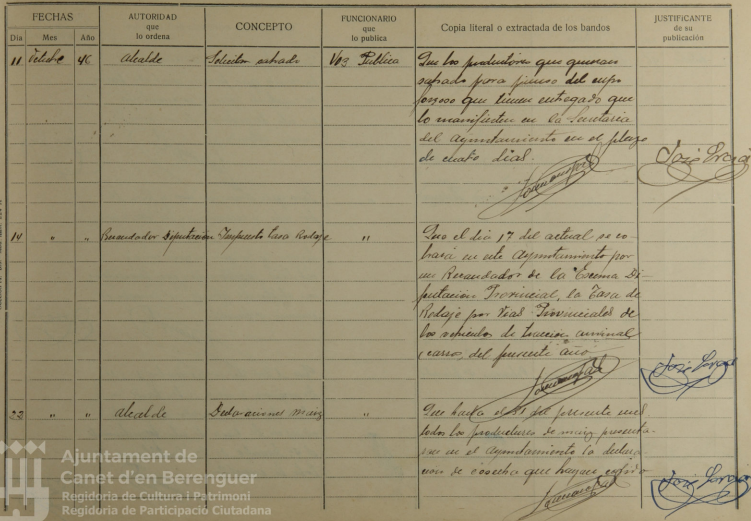 FECHAS
AUTORIDAD
que
lo ordena
CONCEPTO
FUNCIONARIO
que
lo publica
Copia literal o extractada de los bandos
JUSTIFICANTE
de su
publicación
Día Mes Año
11 Octubre 46 Alcalde Solicitar salvado Voz Publica Que los productores que quieran
salvado para pienso del cupo
forzoso que tienen entregado que
lo manifiesten en la Secretaria
del Ayuntamiento en el plazo
de cuatro dias.
14 " " Recaudador Diputación Impuesto tasa Rodaje " Que el dia 17 del actual se co-
brará en este Ayuntamiento por
un Recaudador de la Excma Di-
putación Provincial, la Tasa de
Rodaje por Vias Provinciales de
los vehiculos de tracción animal
carros, del presente año
22 " " Alcalde Declaraciones maiz " Que hasta el 31 del presente mes
todos los productores de maiz presenta-
ran en el Ayuntamiento la declara-
cion de cosecha que hayan cogido
Ajuntament de
Canet d'en Berenguer
Regidoria de Cultura i Patrimoni
Regidoria de Participació Ciutadana